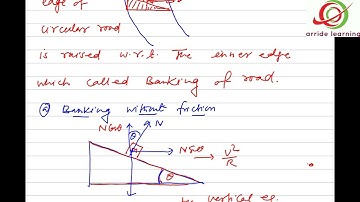 edge of
circular road
arride learning
is raised w.r.t. The inner edge
which called Banking of road.
② Banking without friction
Ncosθ
N
θ
Nsinθ → V²/R
θ
vertical eq.